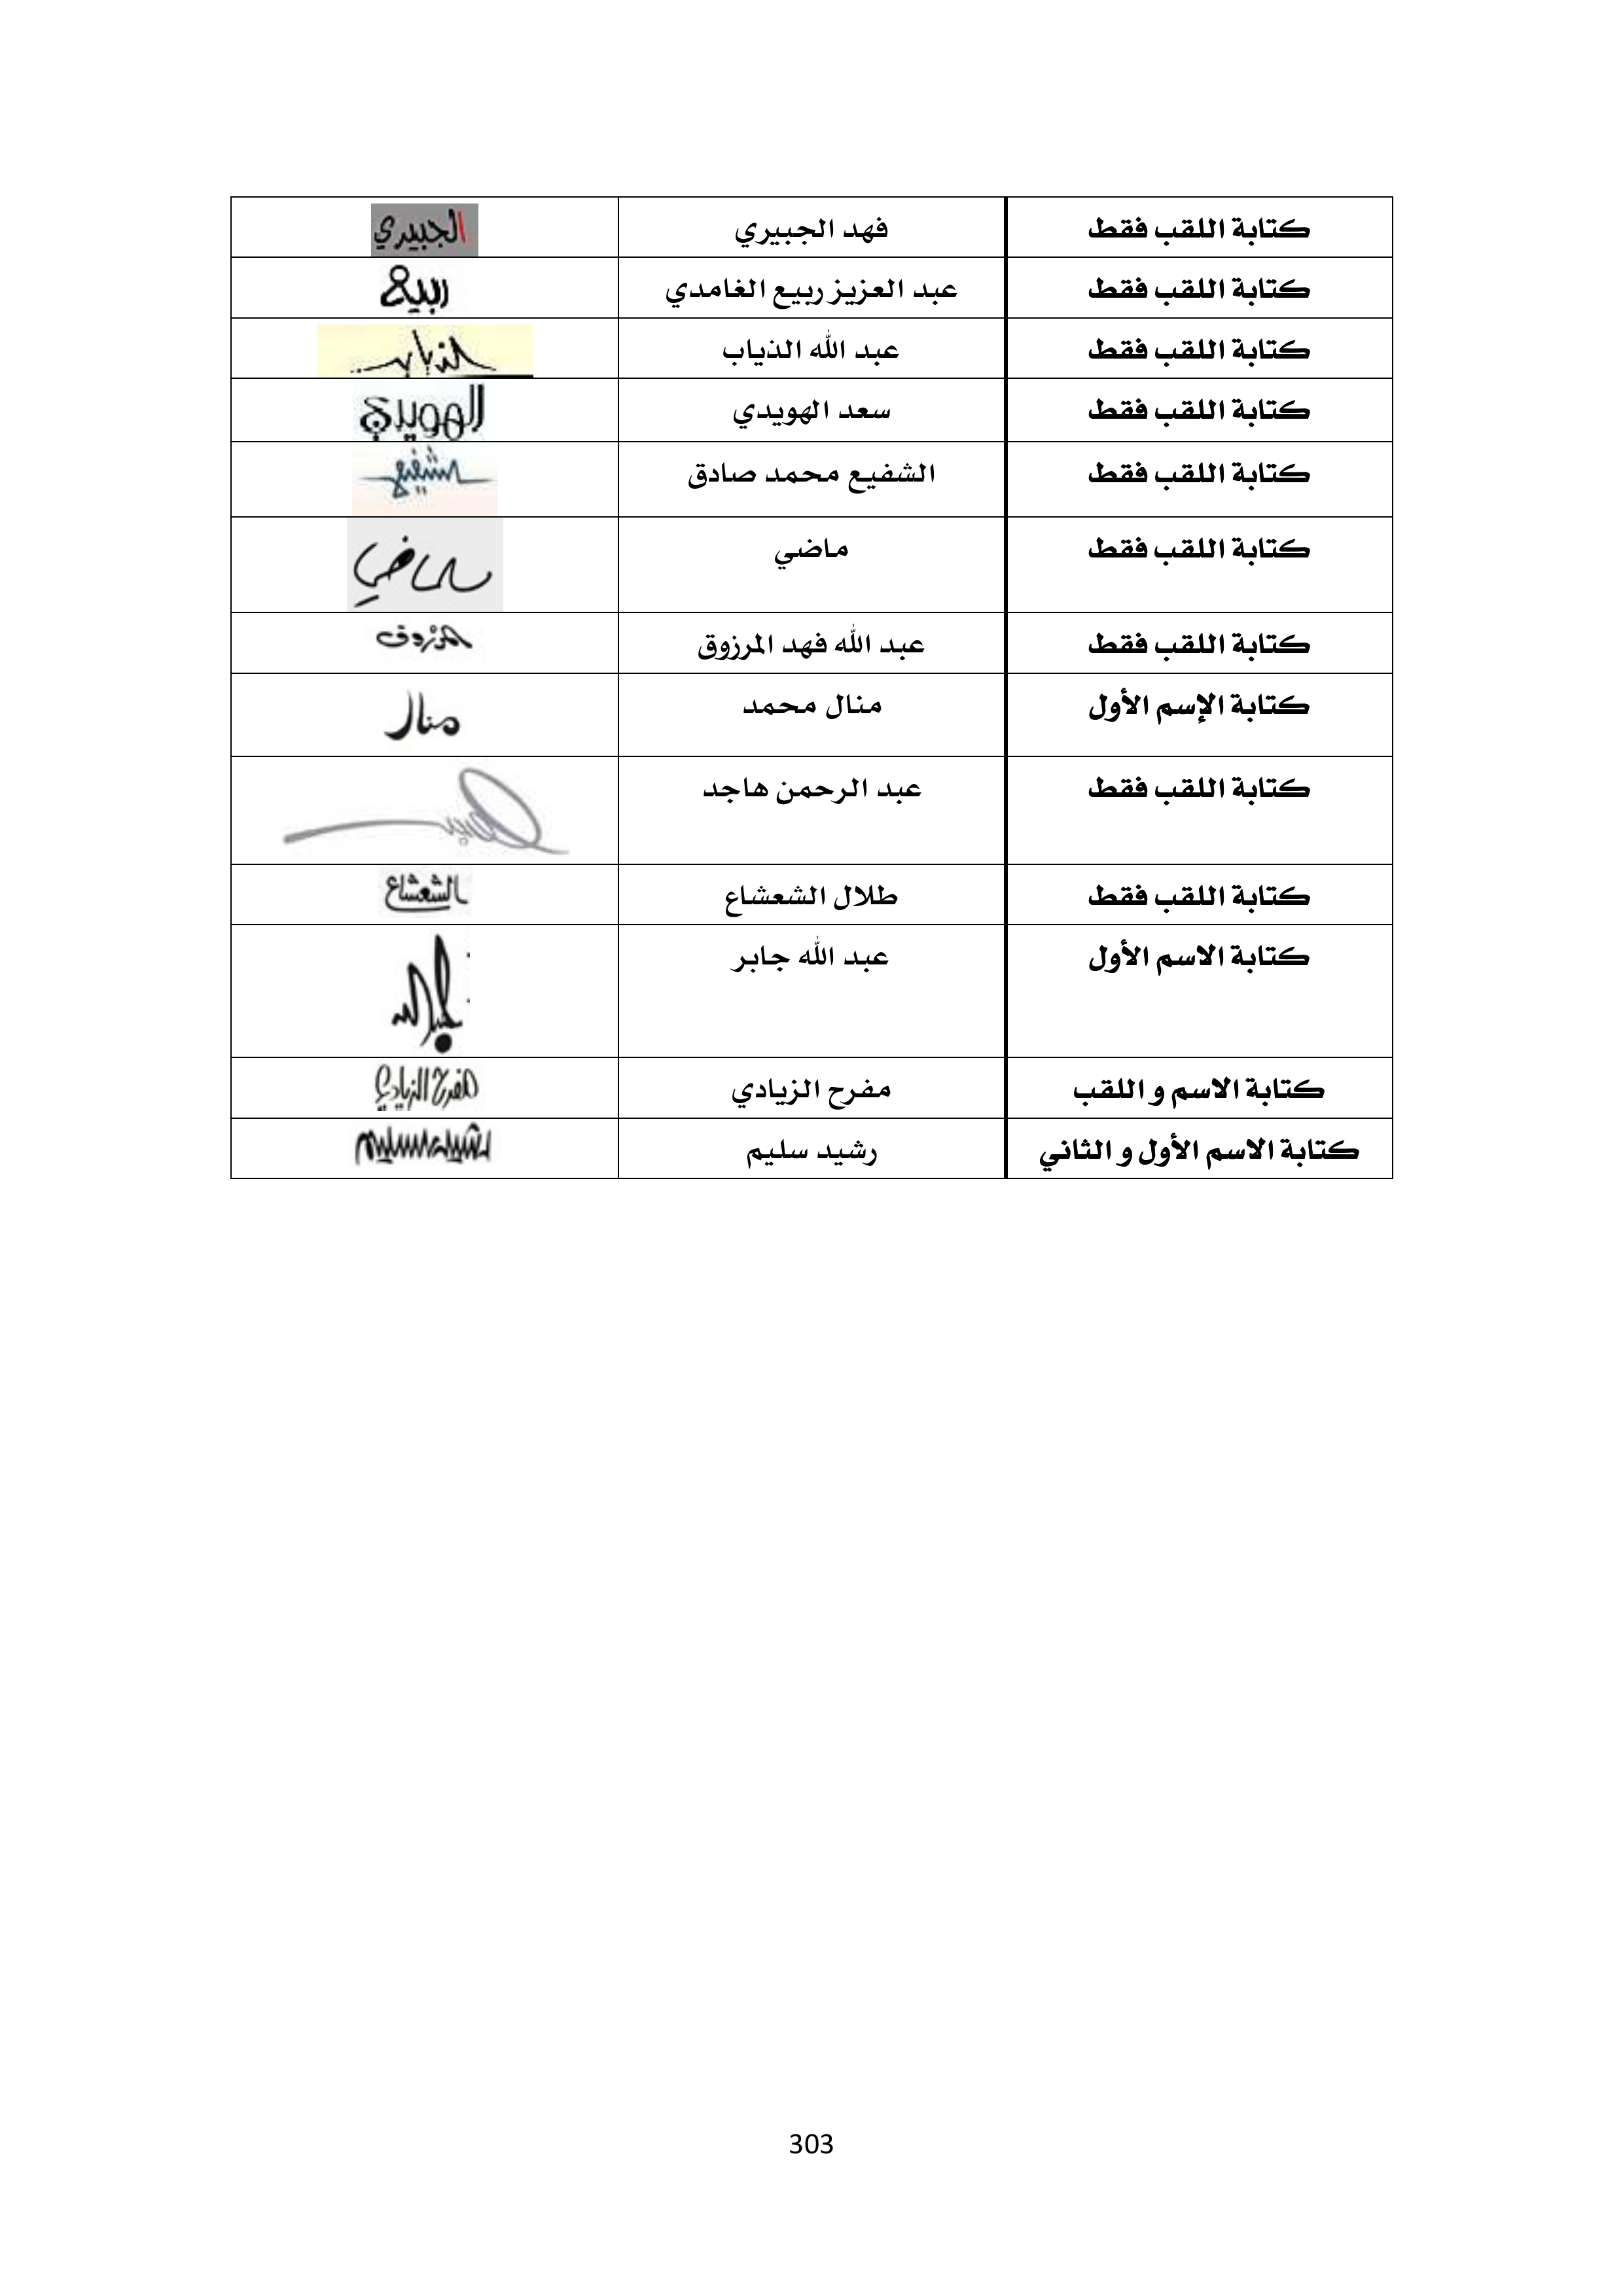 كتابة اللقب فقط فهد الجبيري الجبيري
كتابة اللقب فقط عبد العزيز ربيع الغامدي ربيع
كتابة اللقب فقط عبد الله الذياب الذياب
كتابة اللقب فقط سعد الهويدي الهويدي
كتابة اللقب فقط الشفيع محمد صادق الشفيع
كتابة اللقب فقط ماضي ماضي
كتابة اللقب فقط عبد الله فهد المرزوق المرزوق
كتابة الإسم الأول منال محمد منال
كتابة اللقب فقط عبد الرحمن هاجد
كتابة اللقب فقط طلال الشعشاع الشعشاع
كتابة الاسم الأول عبد الله جابر عبدالله
كتابة الاسم و اللقب مفرح الزيادي مفرح الزيادي
كتابة الاسم الأول و الثاني رشيد سليم رشيد سليم
303